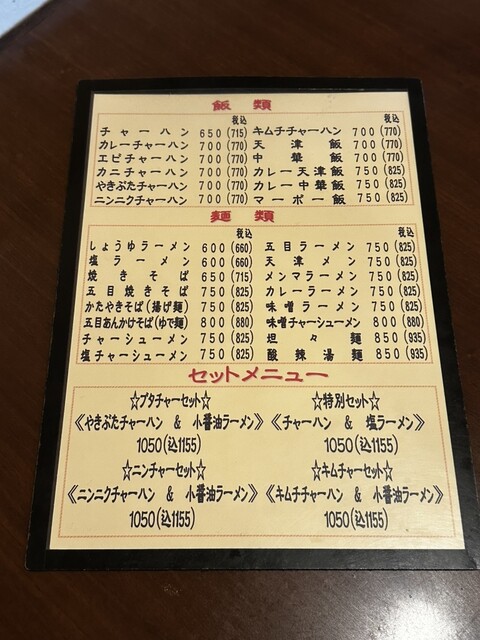 飯 類
税込 税込
チャーハン 650(715) キムチチャーハン 700(770)
カレーチャーハン 700(770) 天津飯 700(770)
エビチャーハン 700(770) 中華飯 700(770)
カニチャーハン 700(770) カレー天津飯 750(825)
やきぶたチャーハン 700(770) カレー中華飯 750(825)
ニンニクチャーハン 700(770) マーボー飯 750(825)
麺 類
税込 税込
しょうゆラーメン 600(660) 五目ラーメン 750(825)
塩ラーメン 600(660) 天津メン 750(825)
焼きそば 650(715) メンマラーメン 750(825)
五目焼きそば 750(825) カレーラーメン 750(825)
かたやきそば(揚げ麺) 750(825) 味噌ラーメン 750(825)
五目あんかけそば(ゆで麺) 800(880) 味噌チャーシューメン 800(880)
チャーシューメン 750(825) 坦々麺 850(935)
塩チャーシューメン 750(825) 酸辣湯麺 850(935)
セットメニュー
☆ブタチャーセット☆ ☆特別セット☆
《やきぶたチャーハン & 小醤油ラーメン》 《チャーハン & 塩ラーメン》
1050(込1155) 1050(込1155)
☆ニンチャーセット☆ ☆キムチャーセット☆
《ニンニクチャーハン & 小醤油ラーメン》 《キムチチャーハン & 小醤油ラーメン》
1050(込1155) 1050(込1155)